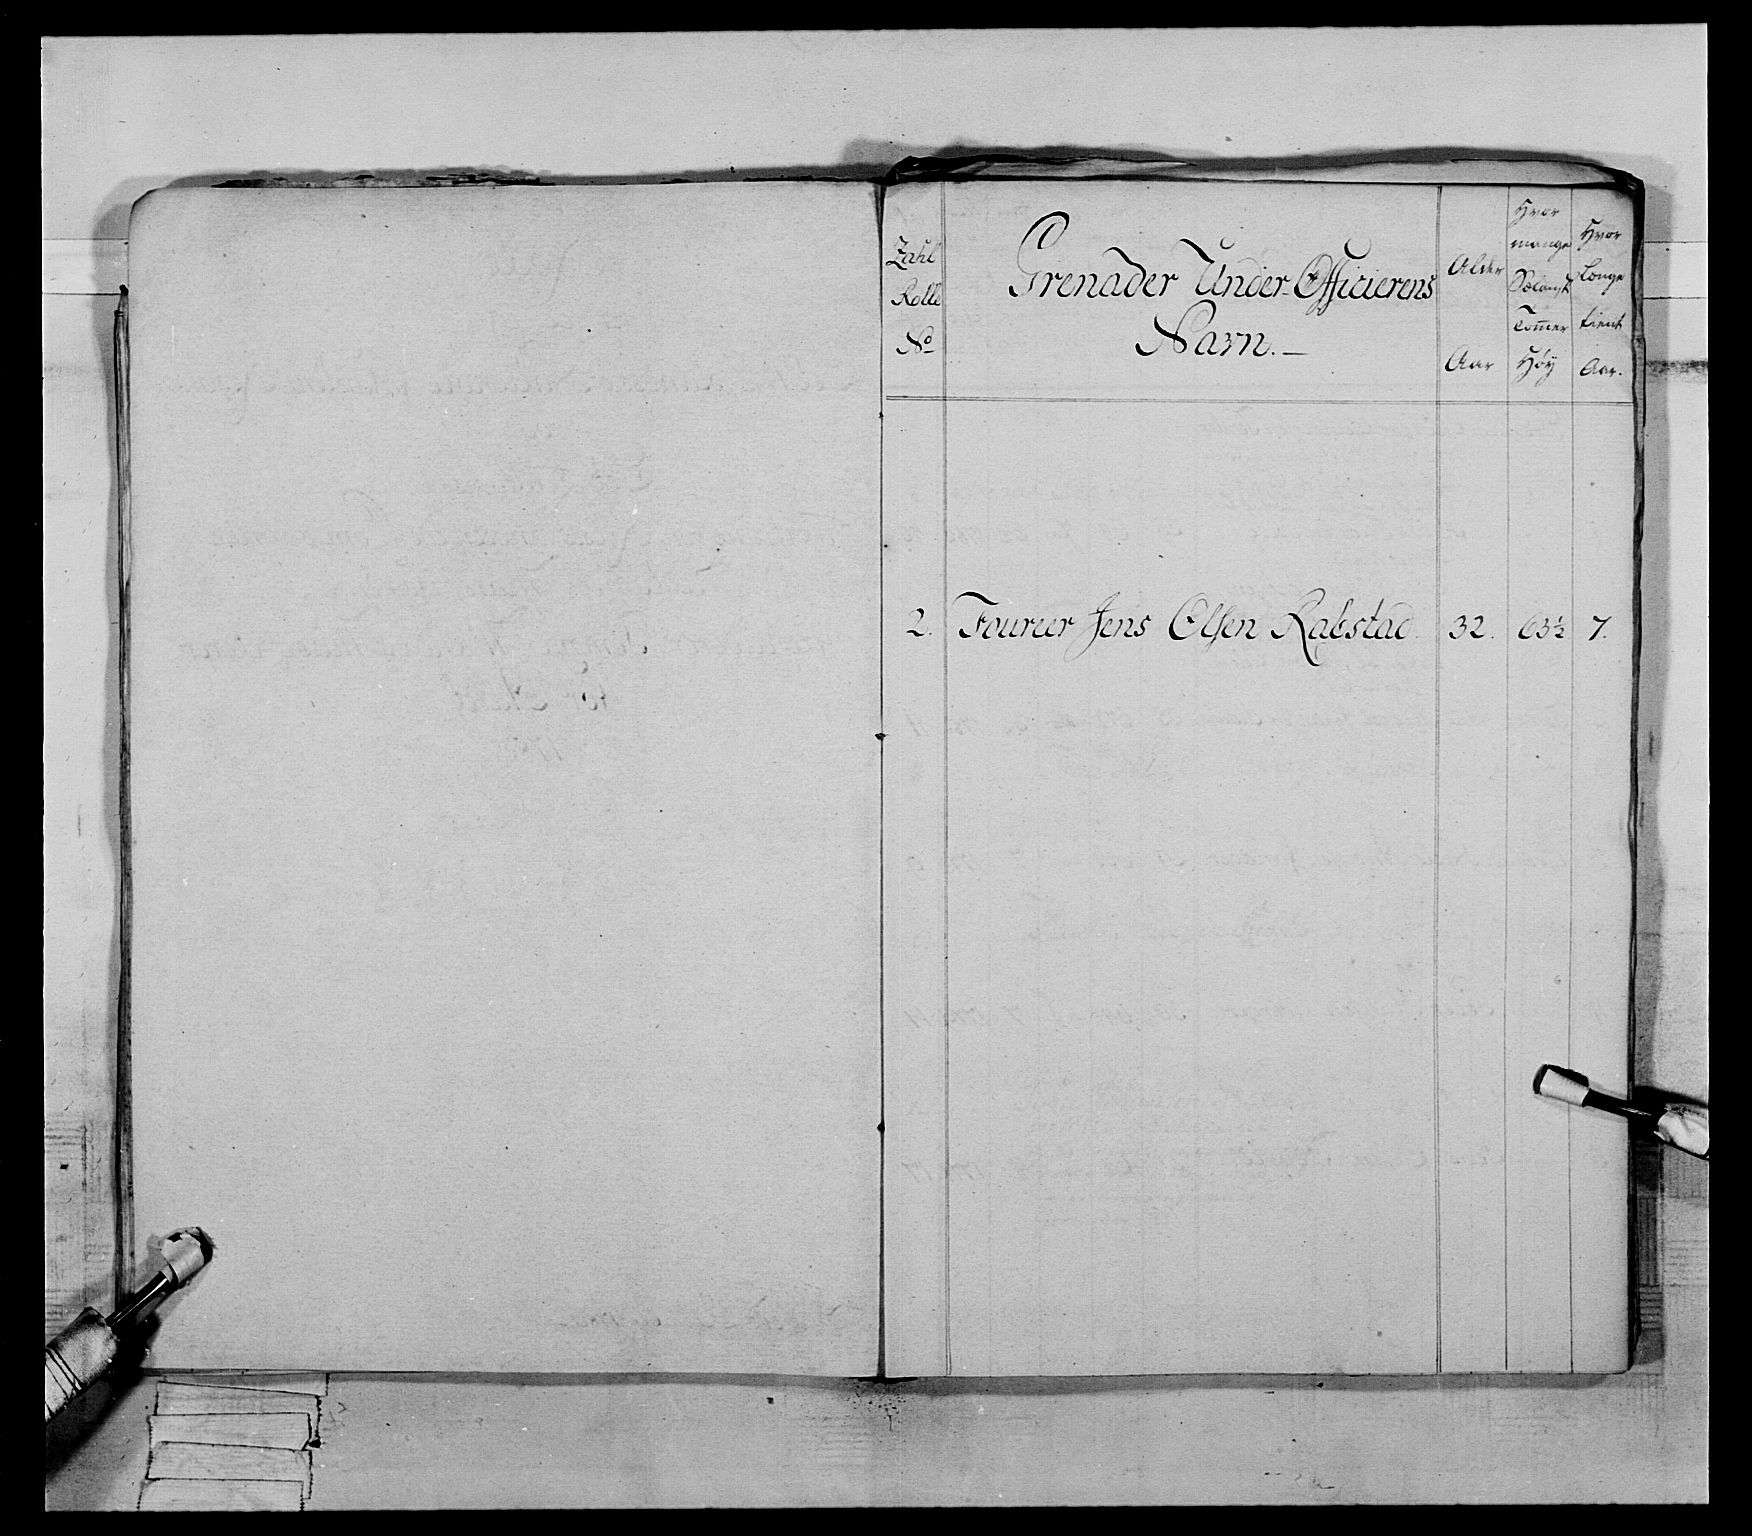 Zahl Rolle No
Grenader Under-Officierens Navn.
Alder Aar
Hvor mange Sælansk Tom̄er Höÿ
Hvor Længe tient Aar.
2. Foureer Jens Olsen Rabstad. 32. 63½ 7.